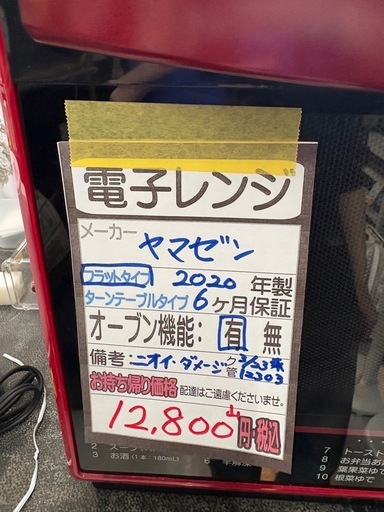 電子レンジ
メーカー
ヤマゼン
フラットタイプ 2020 年製
ターンテーブルタイプ 6 ヶ月保証
オーブン機能: 有 無
備考: ニオイ・ダメージ ク 3/23
管 12303
お持ち帰り価格 配達はご遠慮くださいませ。
12,800 円・税込
2 スープ
3 お酒(1本 180mL)
7 トースト
8 お弁当あ
9 葉果菜ゆで
10 根菜ゆで